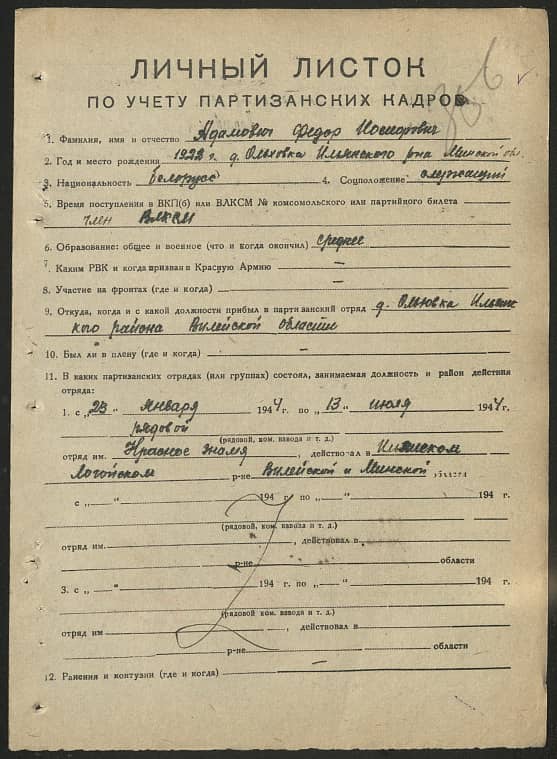 306
ЛИЧНЫЙ ЛИСТОК
ПО УЧЕТУ ПАРТИЗАНСКИХ КАДРОВ
1. Фамилия, имя и отчество Адамович Федор Иосифович
2. Год и место рождения 1922 г. д. Ольховка Ильянского р-на Минской обл.
3. Национальность белорус 4. Соцположение служащий
5. Время поступления в ВКП(б) или ВЛКСМ № комсомольского или партийного билета
член ВЛКСМ
6. Образование: общее и военное (что и когда окончил) среднее
7. Каким РВК и когда призван в Красную Армию —
8. Участие на фронтах (где и когда) —
9. Откуда, когда и с какой должности прибыл в партизанский отряд д. Ольховка Ильян
ского района Вилейской области
10. Был ли в плену (где и когда) —
11. В каких партизанских отрядах (или группах) состоял, занимаемая должность и район действия
отряда:
1. с „23“ января 1944 г. по „13“ июля 1944 г.
рядовой
(рядовой, ком. взвода и т. д.)
отряд им. Красное знамя, действовал в Ильянском
Логойском р-не Вилейской и Минской области
с „ “ 194 г. по „ “ 194 г.
(рядовой, ком. взвода и т. д.)
отряд им. , действовал в
р-не области
3. с „ “ 194 г. по „ “ 194 г.
(рядовой ком. взвода и т. д.)
отряд им , действовал в
р-не области
12. Ранения и контузии (где и когда) —